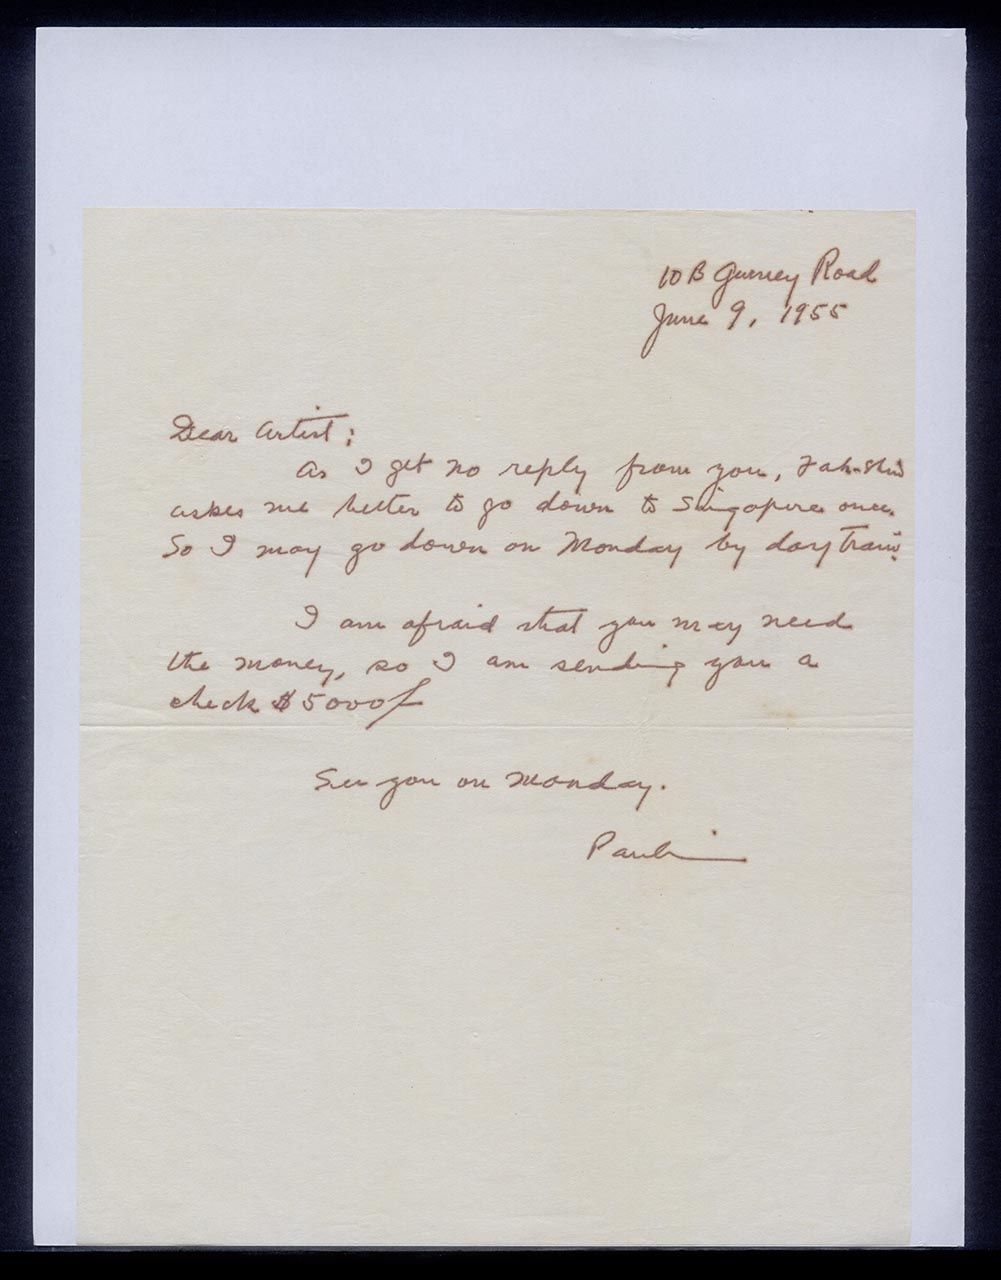 10 B Gurney Road
June 9, 1955
Dear Artist:
As I get no reply from you, Fah-Shin
askes me better to go down to Singapore once.
So I may go down on Monday by day train.
I am afraid that you may need
the money, so I am sending you a
check $5000/
See you on Monday.